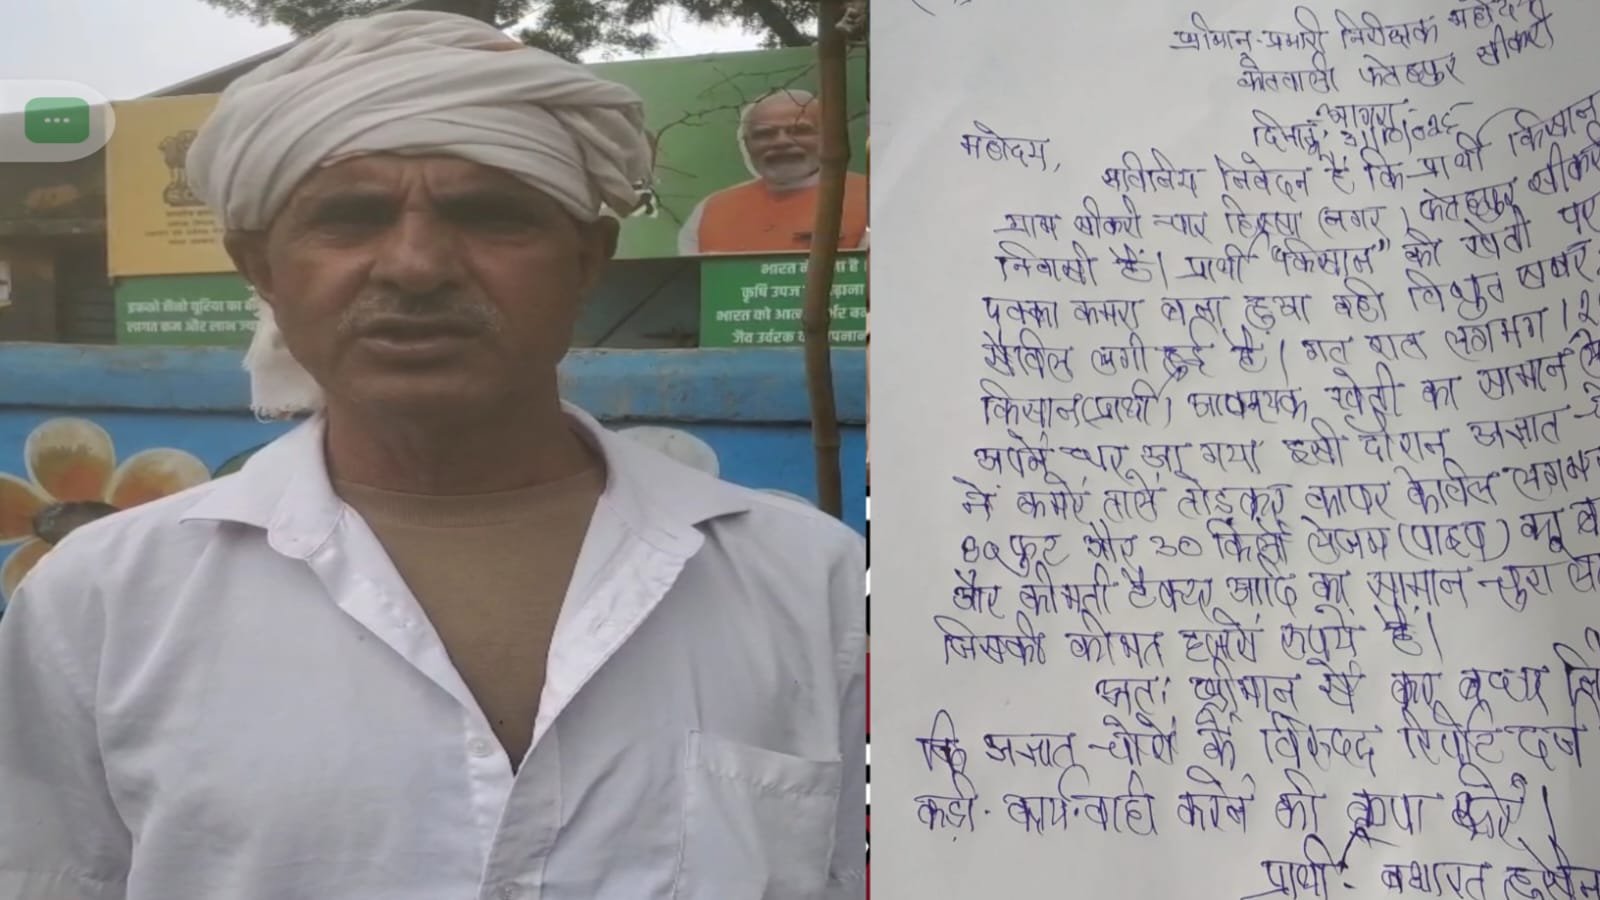 भारत
कृषि उपज
भारत को आत्म
जैव उर्वरक
इफको नैनो यूरिया का
लागत कम और लाभ ज्या
श्रीमान प्रभारी निरीक्षक महोदय
कोतवाली फतेहपुर सीकरी
आगरा
महोदय,
सविनय निवेदन है कि प्रार्थी किसान
ग्राम सीकरी चार हिस्सा फतेहपुर सीकरी
निवासी है। प्रार्थी "किसान" की खेती पर
पक्का कमरा बना हुआ वही विधुत
लगी हुई है। गत रात लगभग 12
किसान(प्रार्थी) आवश्यक खेती का सामान
अपने घर आ गया इसी दौरान अज्ञात
ने कमरे ताले तोड़कर कापर केविल लगभग
60 फुट और 30 किलो लेजम (पाइप) का
और कीमती टैक्टर आदि का सामान चुरा
जिसकी कीमत हजारो रुपये है।
अतः श्रीमान से कर बध्द
कि अज्ञात चोरों के विरुध्द रिपोर्ट दर्ज
कड़ी कार्यवाही करने की कृपा करें।
प्रार्थी - बशारत हुसैन